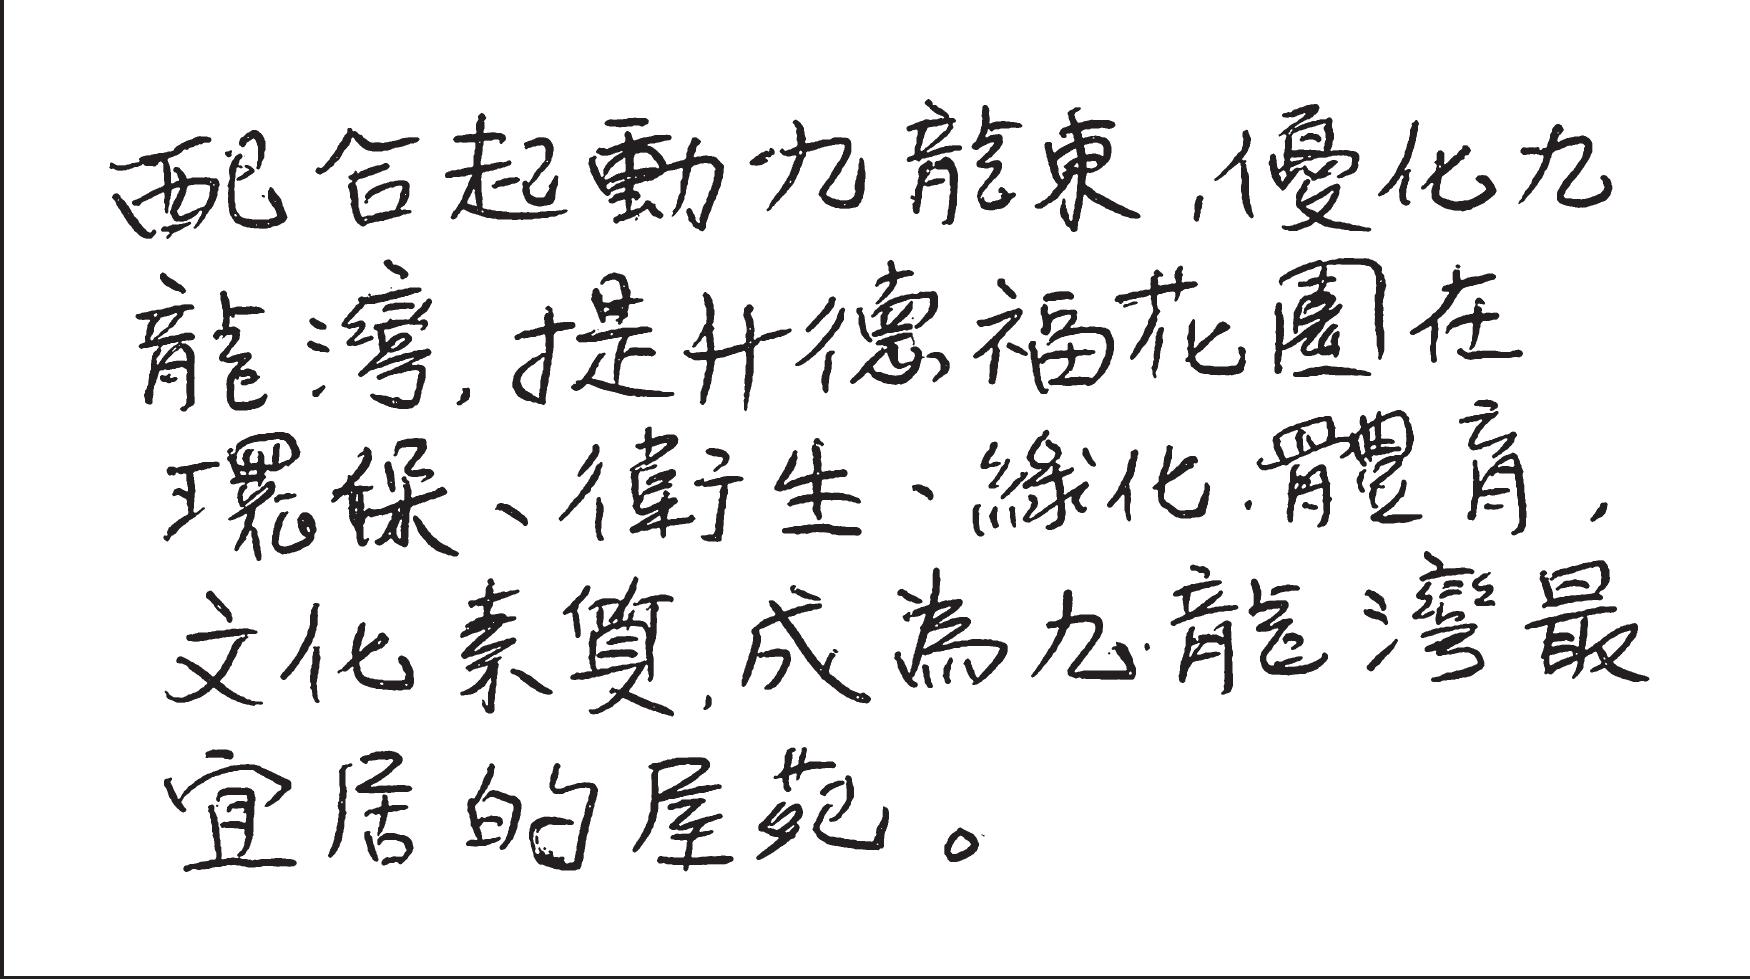 配合起動九龍東,優化九
龍灣,提升德福花園在
環保、衛生、綠化、體育,
文化素質,成為九龍灣最
宜居的屋苑。